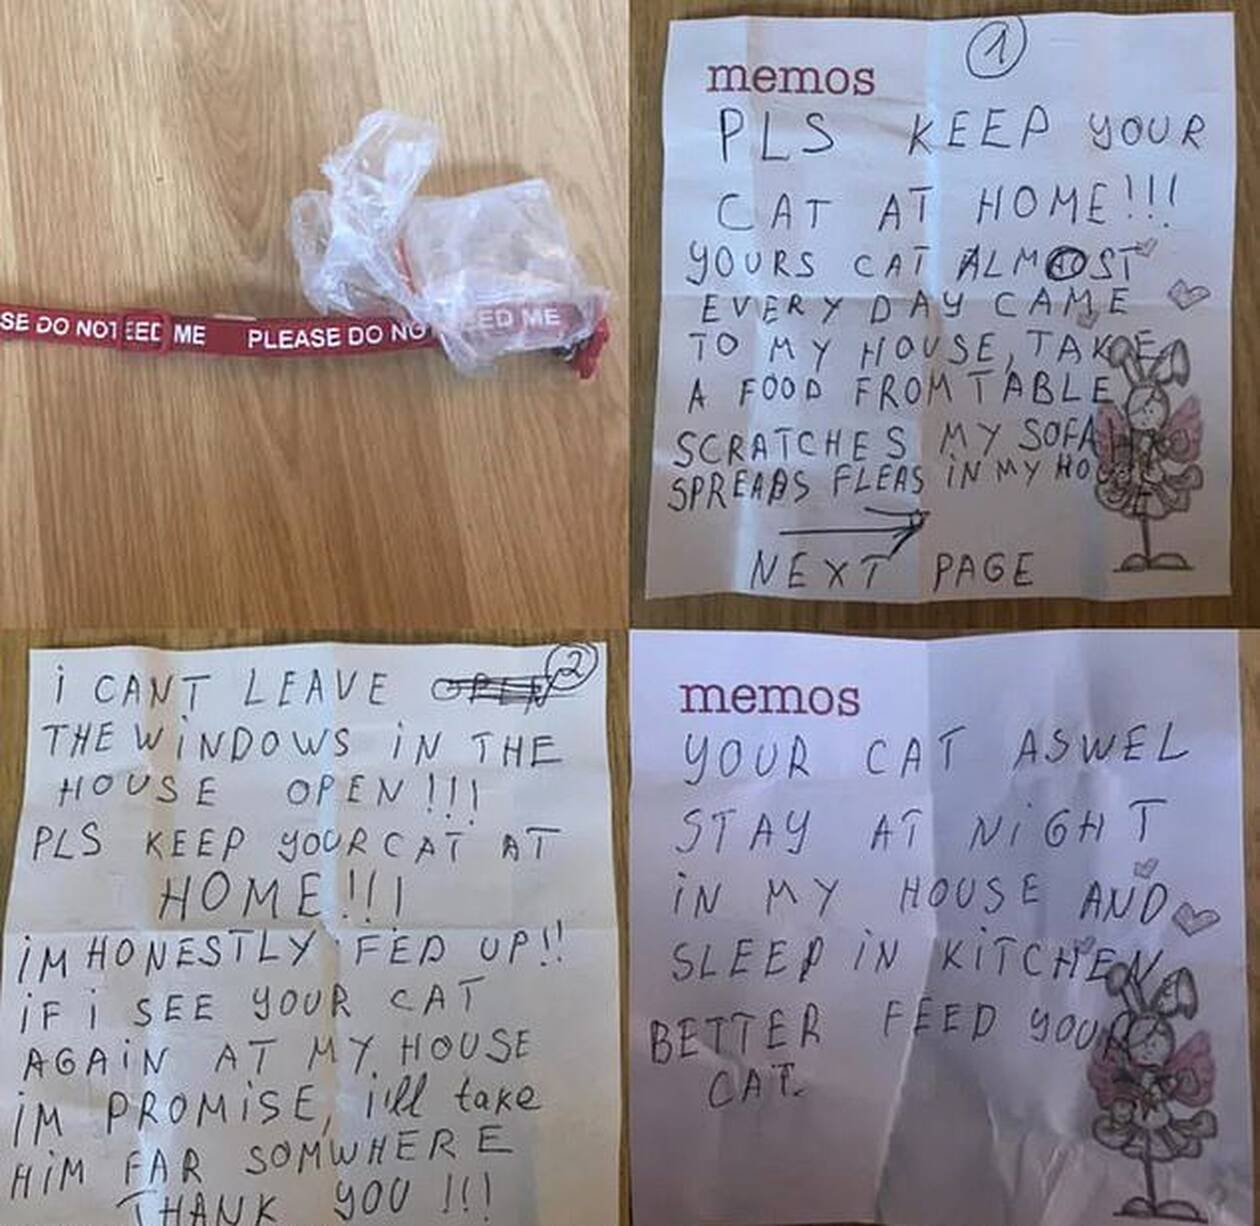 SE DO NOT EED ME PLEASE DO NO EED ME
1
memos
PLS KEEP YOUR
CAT AT HOME!!!
YOURS CAT ALMOST
EVERY DAY CAME
TO MY HOUSE, TAKE
A FOOD FROM TABLE
SCRATCHES MY SOFA
SPREADS FLEAS iN MY HOU
NEXT PAGE
2
i CANT LEAVE
THE WiNDOWS iN THE
HOUSE OPEN!!!
PLS KEEP YOUR CAT AT
HOME!!!
iM HONESTLY FED UP!!
iF i SEE YOUR CAT
AGAiN AT MY HOUSE
iM PROMiSE, i'll take
HiM FAR SOMWHERE
THANK YOU !!!
memos
YOUR CAT ASWEL
STAY AT NiGHT
iN MY HOUSE AND
SLEEP iN KiTCHEN
BETTER FEED YOUR
CAT.